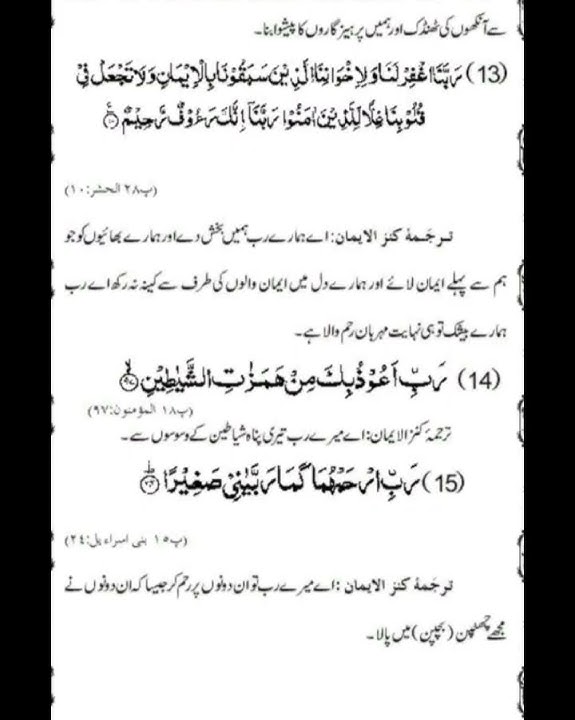 سے آنکھوں کی ٹھنڈک اور ہمیں پرہیزگاروں کا پیشوا بنا۔
(13) رَبَّنَا اغْفِرْ لَنَا وَلِاِخْوَانِنَا الَّذِيْنَ سَبَقُوْنَا بِالْاِيْمَانِ وَلَا تَجْعَلْ فِيْ
قُلُوْبِنَا غِلًّا لِّلَّذِيْنَ اٰمَنُوْا رَبَّنَاۤ اِنَّكَ رَءُوْفٌ رَّحِيْمٌ ۝۱۰
(پ۲۸ الحشر:۱۰)
ترجَمۂ کنز الایمان: اے ہمارے رب ہمیں بخش دے اور ہمارے بھائیوں کو جو
ہم سے پہلے ایمان لائے اور ہمارے دل میں ایمان والوں کی طرف سے کینہ نہ رکھ اے رب
ہمارے بیشک تو ہی نہایت مہربان رحم والا ہے۔
(14) رَبِّ اَعُوْذُ بِكَ مِنْ هَمَزٰتِ الشَّيٰطِيْنِ ۝۹۷
(پ۱۸ المؤمنون:۹۷)
ترجمۂ کنز الایمان: اے میرے رب تیری پناہ شیاطین کے وسوسوں سے۔
(15) رَبِّ ارْحَمْهُمَا كَمَا رَبَّيٰنِيْ صَغِيْرًا ۝۲۴
(پ۱۵ بنی اسراءیل:۲۴)
ترجَمۂ کنز الایمان: اے میرے رب تو ان دونوں پر رحم کر جیسا کہ ان دونوں نے
مجھے چھٹپن (بچپن) میں پالا۔